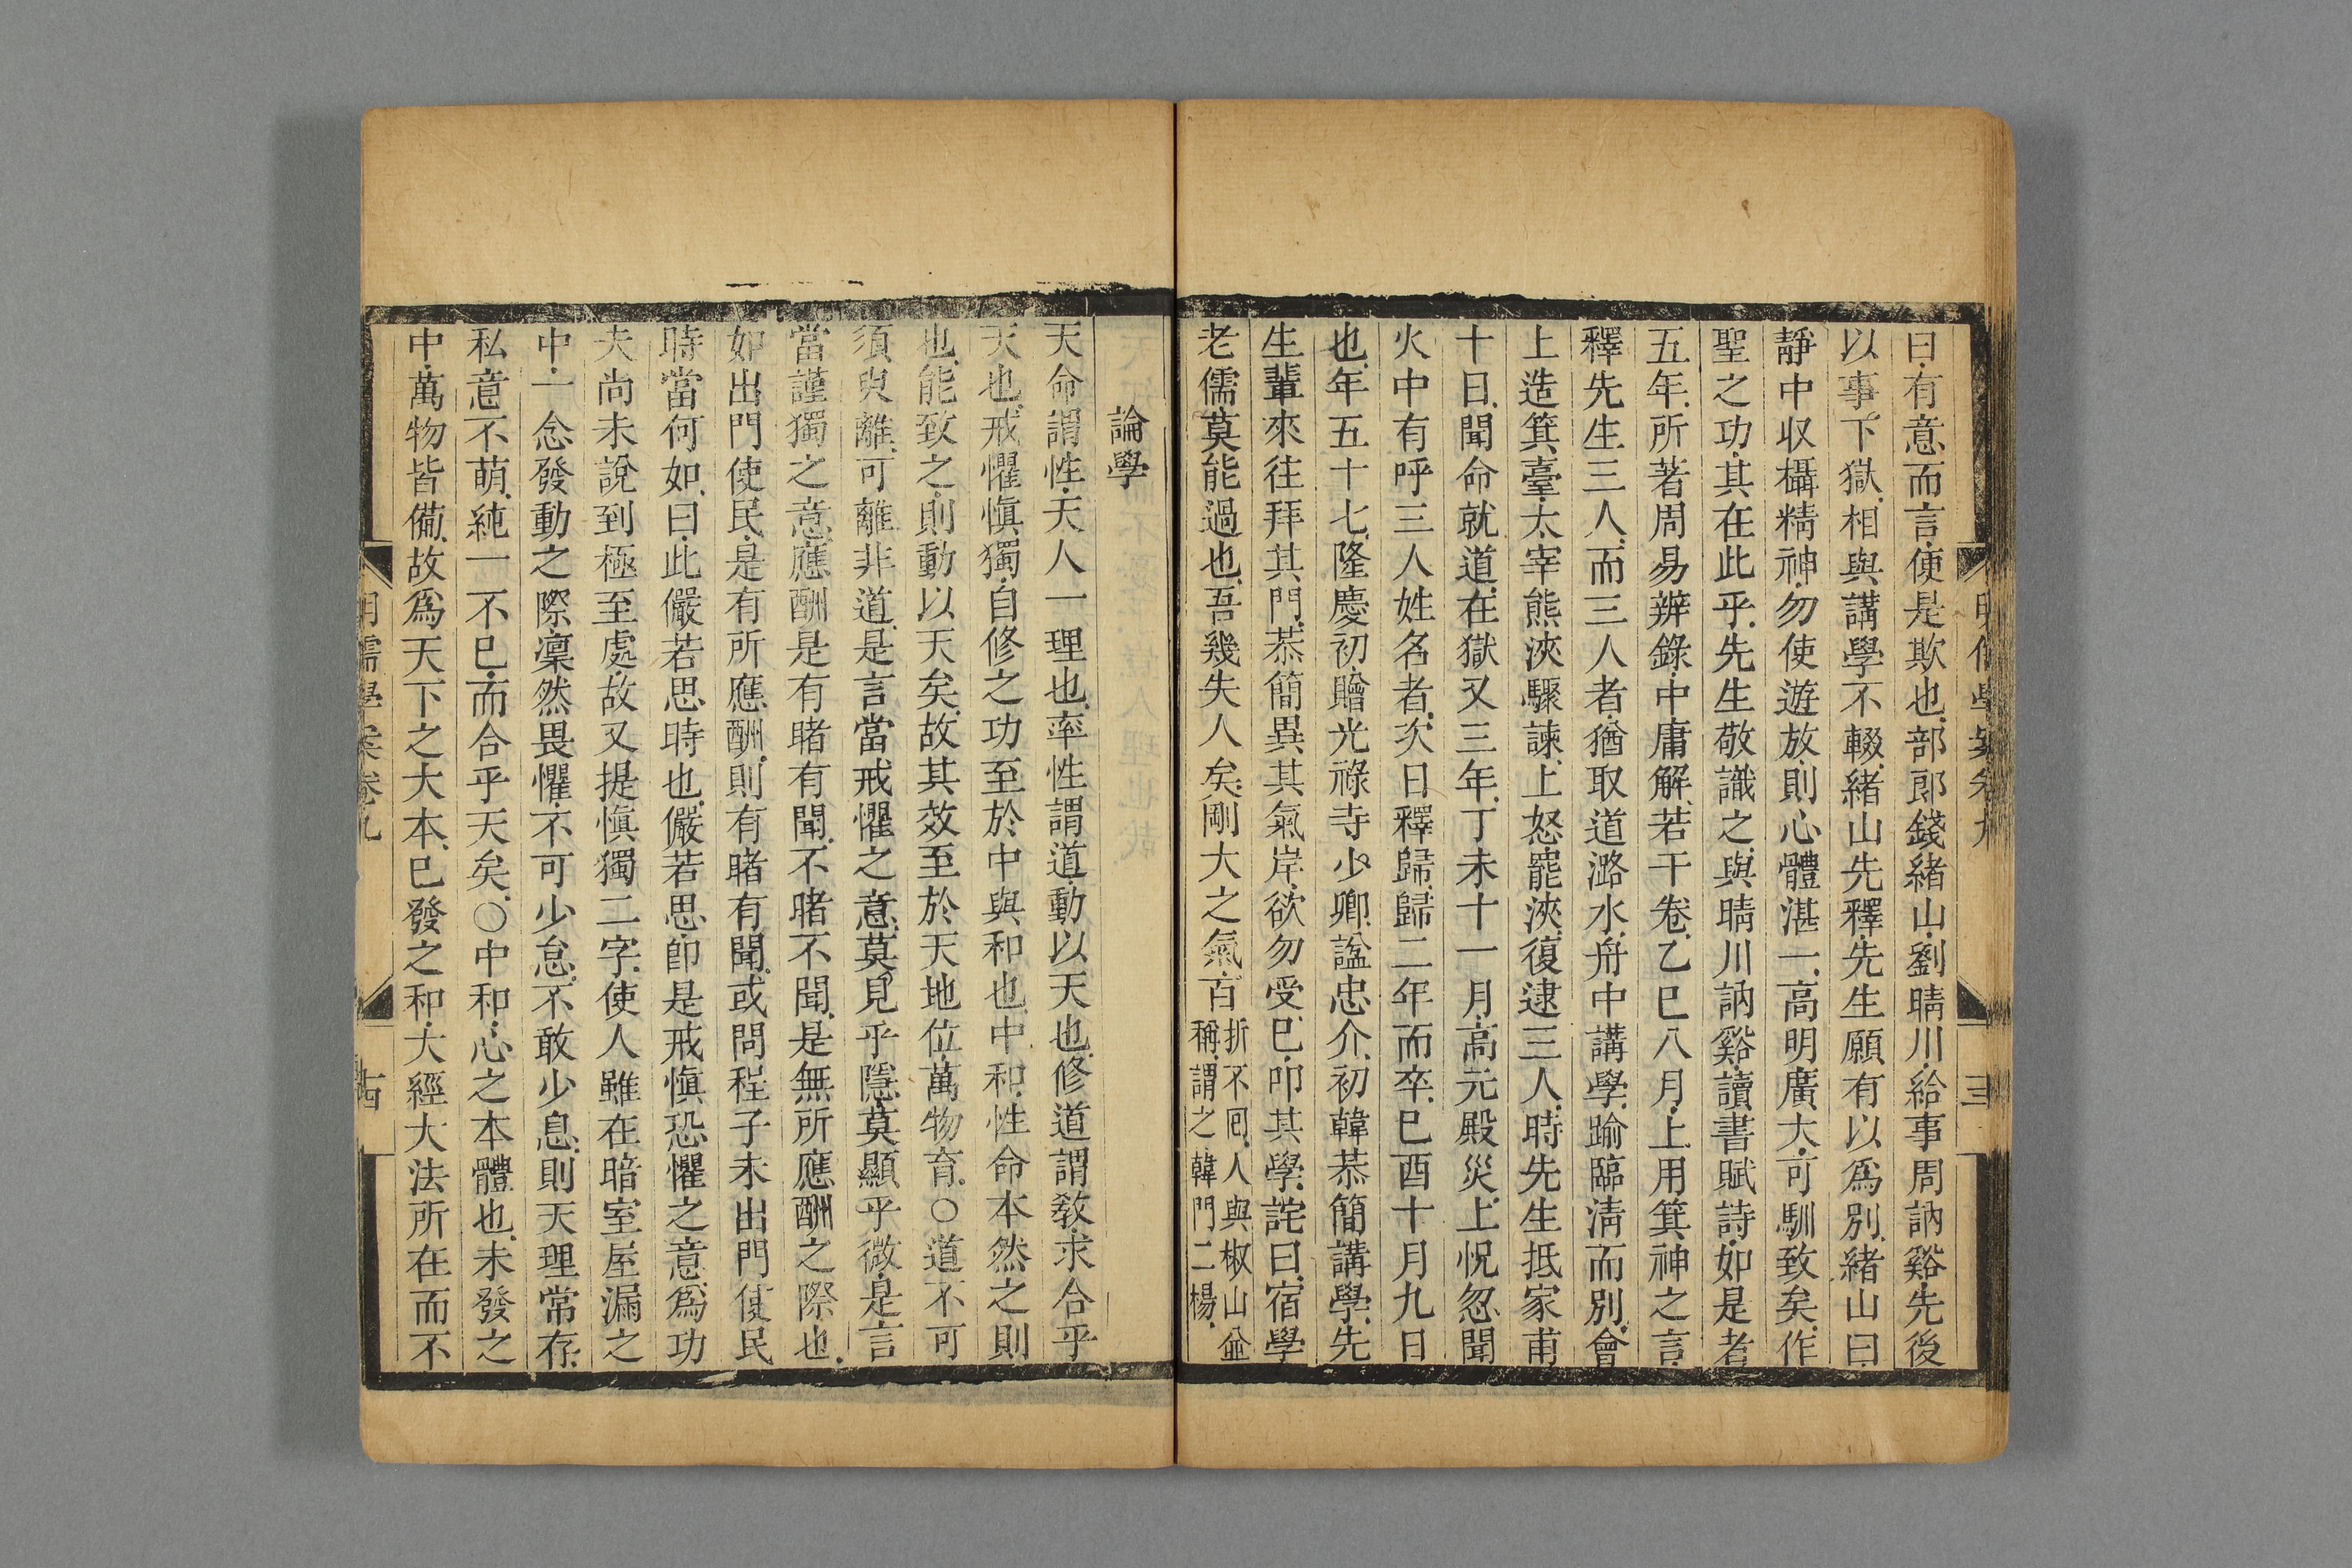 曰有意而言便是欺也部郎錢緒山劉晴川給事周訥谿先後
以事下獄相與講學不輟緒山先釋先生願有以爲別緒山曰
靜中収攝精神勿使遊放則心體湛一高明廣大可馴致矣作
聖之功其在此乎先生敬識之與晴川訥谿讀書賦詩如是者
五年所著周易辨錄中庸解若干卷乙巳八月上用箕神之言
釋先生三人而三人者猶取道潞水舟中講學踰臨淸而別會
上造箕臺太宰熊浹驟諫上怒罷浹復逮三人時先生抵家甫
十日聞命就道在獄又三年丁未十一月高元殿災上怳忽聞
火中有呼三人姓名者次日釋歸歸二年而卒巳酉十月九日
也年五十七隆慶初贈光祿寺少卿諡忠介初韓恭簡講學先
生輩來往拜其門恭簡異其氣岸欲勿受巳叩其學詫曰宿學
老儒莫能過也吾幾失人矣剛大之氣百
折不回人與椒山並
稱謂之韓門二楊
論學
天命謂性天人一理也率性謂道動以天也修道謂敎求合乎
天也戒懼愼獨自修之功至於中與和也中和性命本然之則
也能致之則動以天矣故其效至於天地位萬物育○道不可
須臾離可離非道是言當戒懼之意莫見乎隱莫顯乎微是言
當謹獨之意應酬是有睹有聞不睹不聞是無所應酬之際也
如出門使民是有所應酬則有睹有聞或問程子未出門使民
時當何如曰此儼若思時也儼若思卽是戒愼恐懼之意爲功
夫尚未說到極至處故又提愼獨二字使人雖在暗室屋漏之
中一念發動之際凜然畏懼不可少怠不敢少息則天理常存
私意不萌純一不巳而合乎天矣○中和心之本體也未發之
中萬物皆備故爲天下之大本巳發之和大經大法所在而不
明儒學案卷九